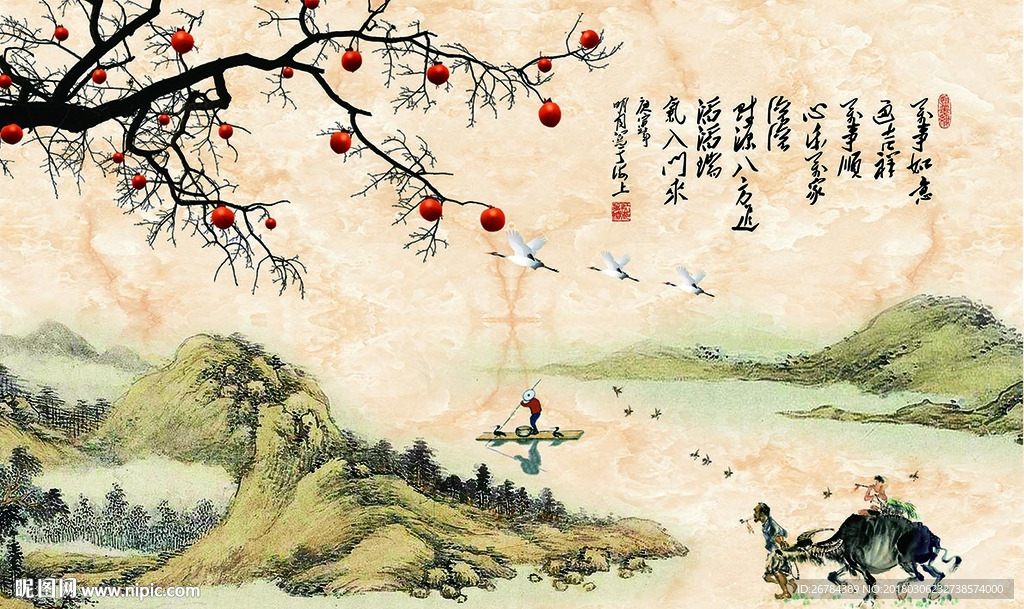 萬事如意
吉祥
萬事順
心樂萬家
財源八方進
滔滔瑞
氣入門來
庚寅年
明月寫于海上
昵图网 www.nipic.com
ID:26784389 NO:20180306232738574000